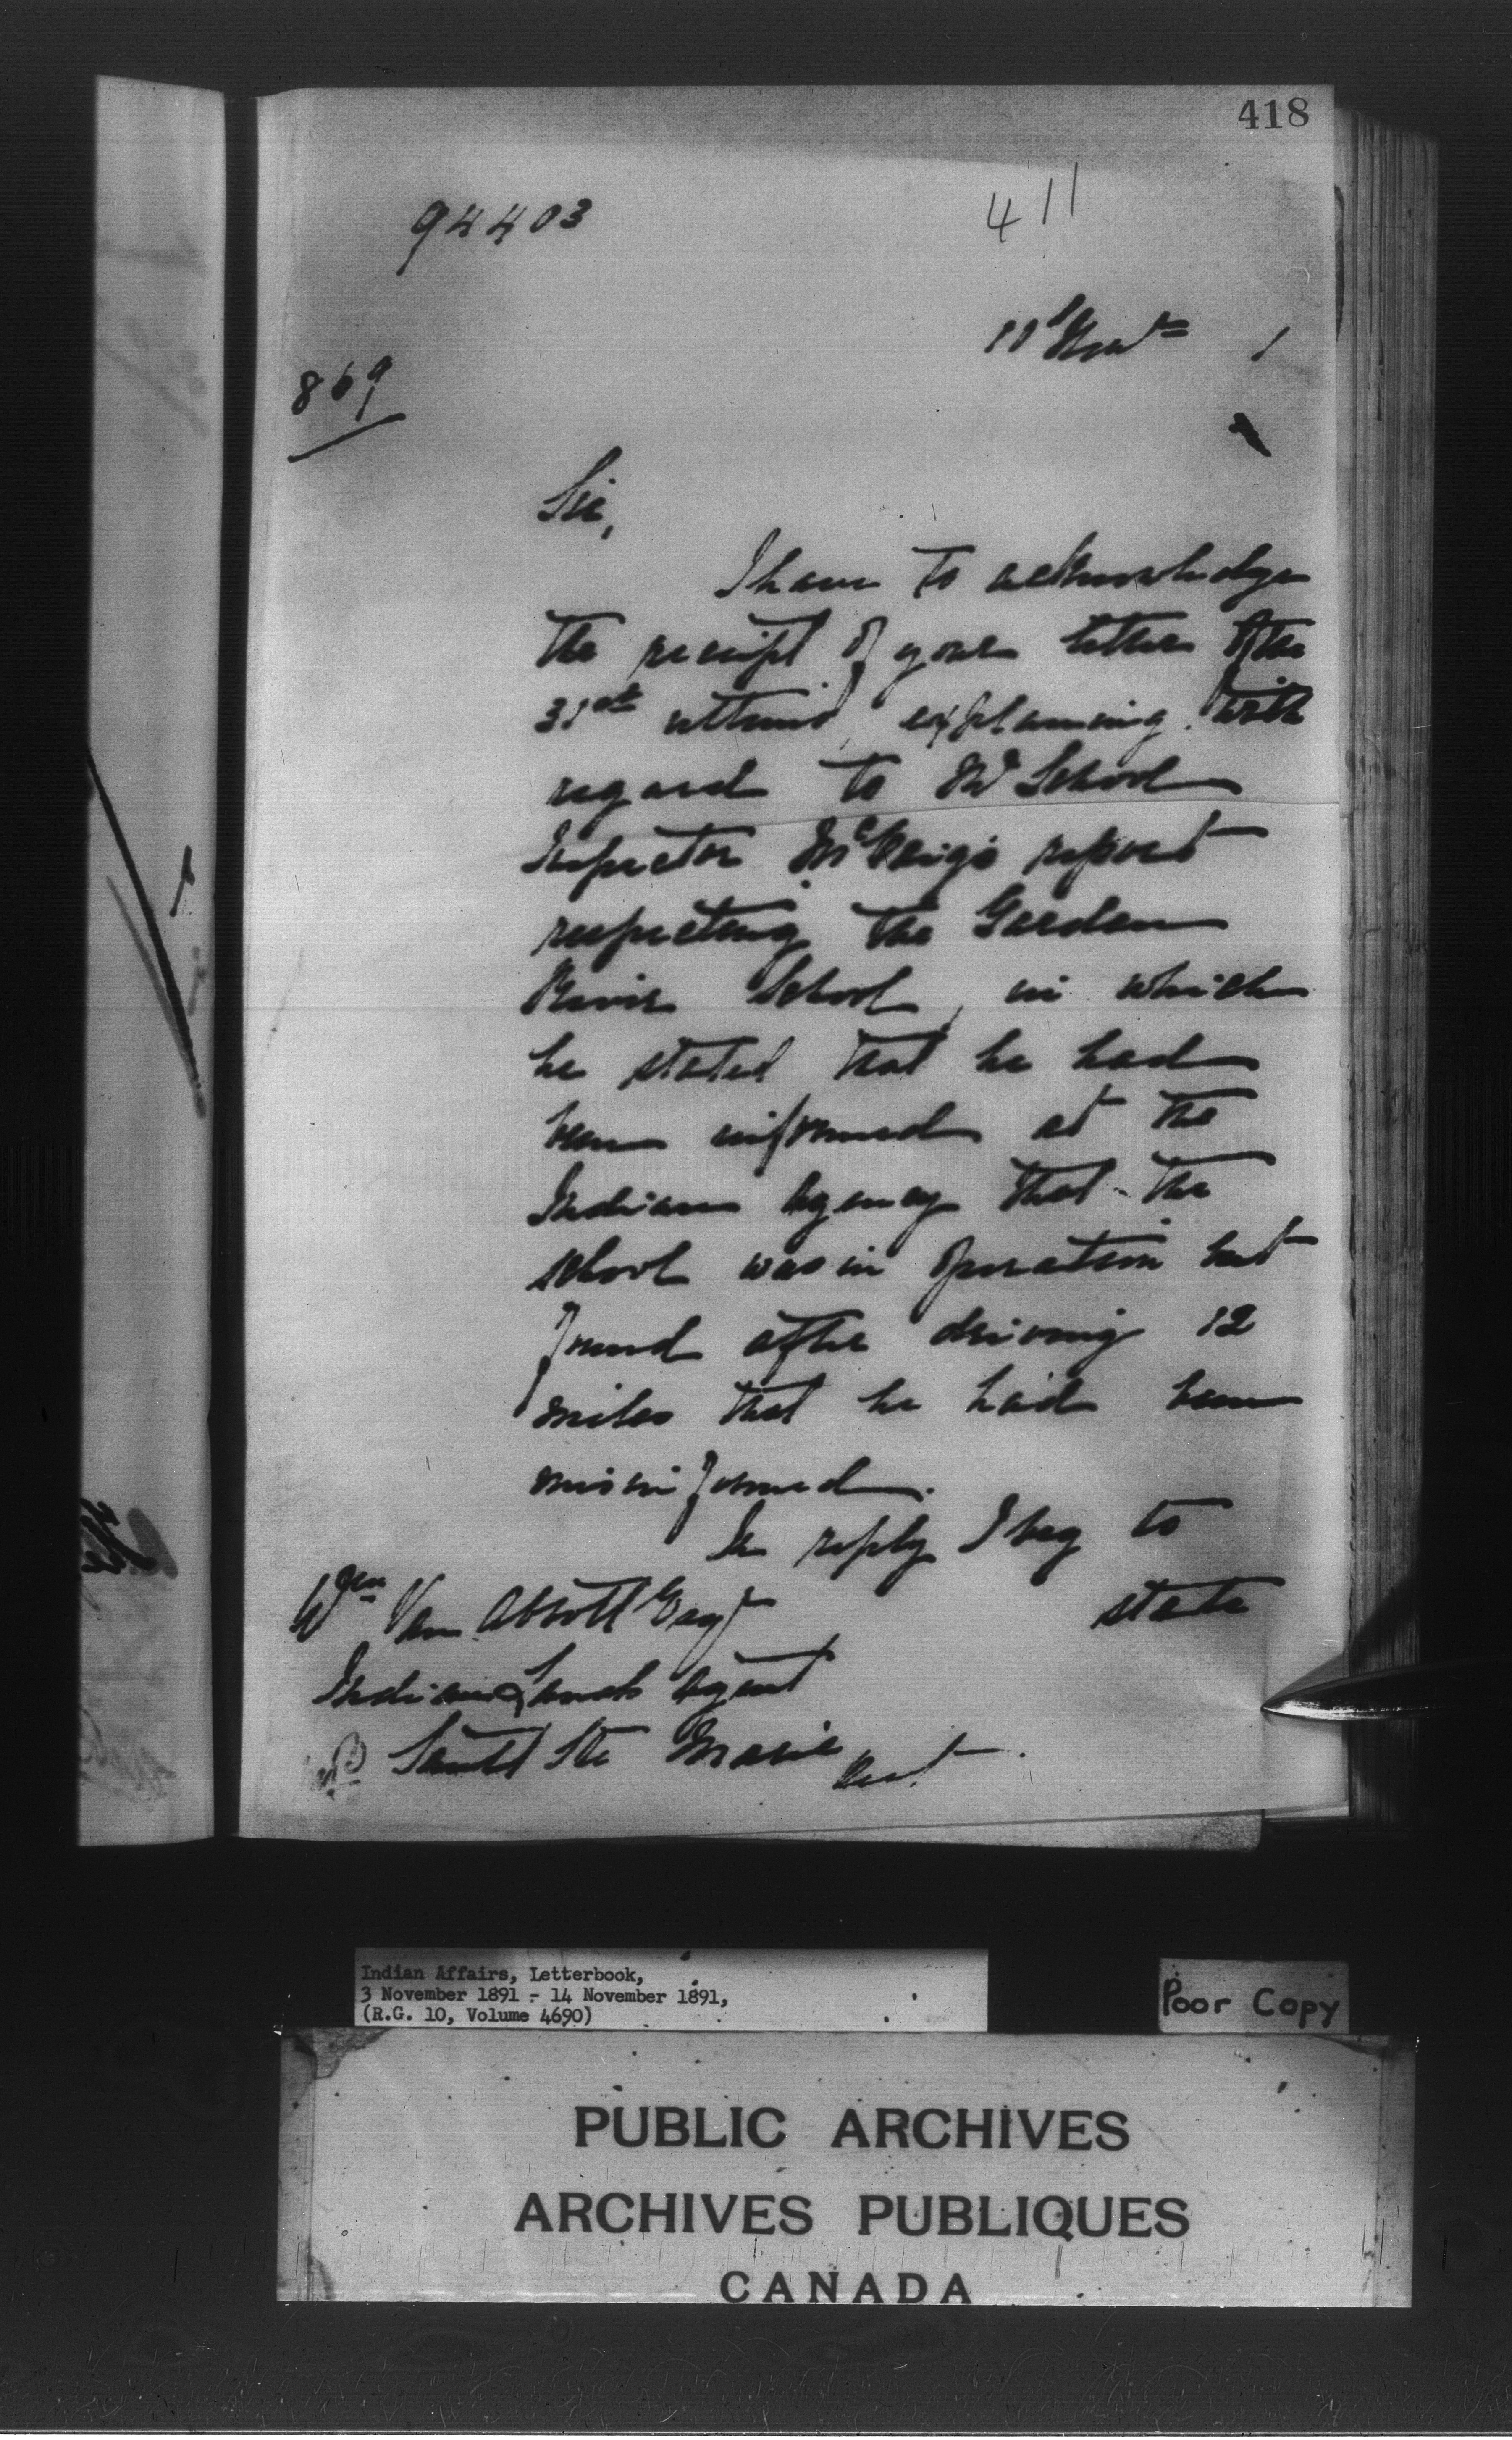 418
411
94403
11 Nov 1
869
Sir,
I have to acknowledge
the receipt of your letter of the
31st ultimo, explaining with
regard to Mr School
Inspector McCaig's report
respecting the Garden
River School, in which
he stated that he had
been informed at the
Indian Agency that the
school was in operation but
found after driving 12
miles that he had been
misinformed.
In reply I beg to
state
Wm Van Abbott Esqr
Indian Lands Agent
Sault Ste Marie Ont.
Indian Affairs, Letterbook,
3 November 1891 - 14 November 1891,
(R.G. 10, Volume 4690)
Poor Copy
PUBLIC ARCHIVES
ARCHIVES PUBLIQUES
CANADA